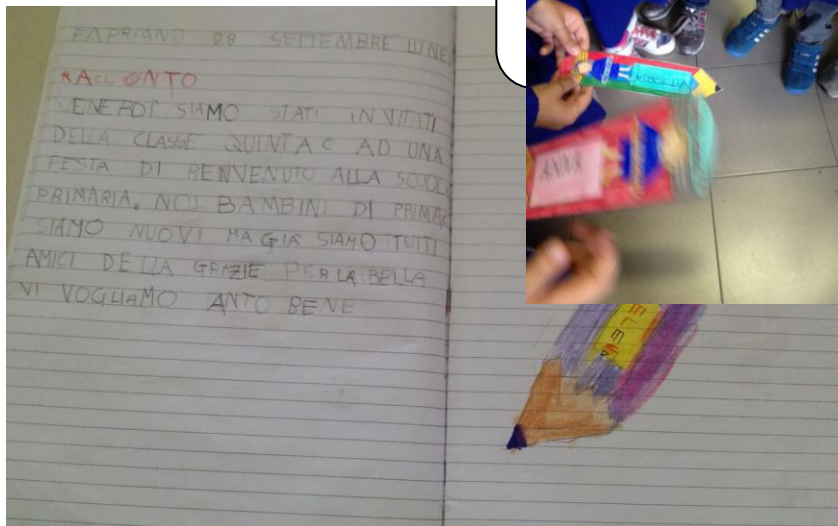 FAPRIANO 28 SETTEMBRE LUNE
RACCONTO
VENERDI SIAMO STATI INVITATI
DELLA CLASSE QUINTA C AD UNA
FESTA DI BENVENUTO ALLA SCUOL
PRIMARIA. NOI BAMBINI DI PRIMAC
SIAMO NUOVI MA GIA SIAMO TUTTI
AMICI DELLA GRAZIE PER LA BELLA
VI VOGLIAMO ANTO BENE
VITTORIA
ANNY
ELENA